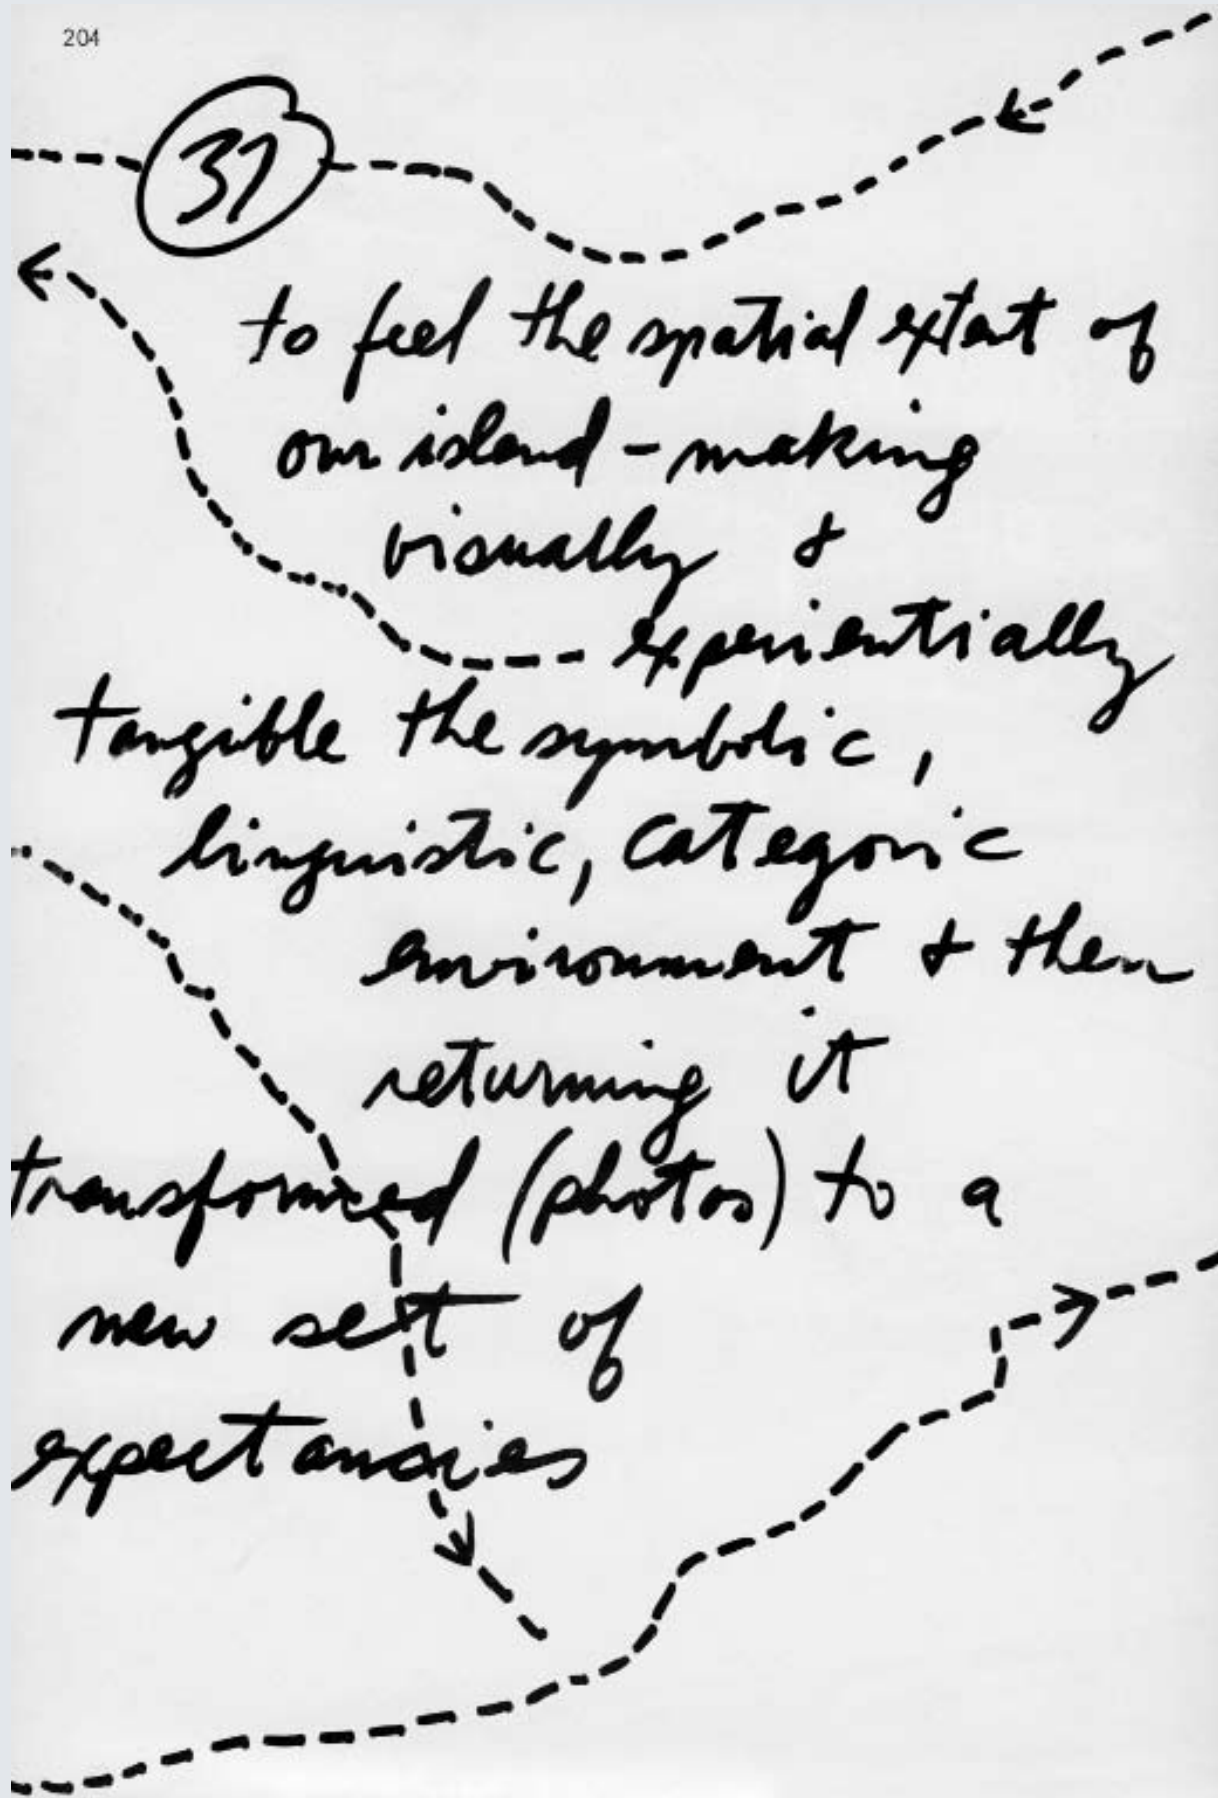 204
37
to feel the spatial extent of
our island - making
visually &
experientially
tangible the symbolic,
linguistic, categoric
environment & then
returning it
transformed (photos) to a
new set of
expectancies